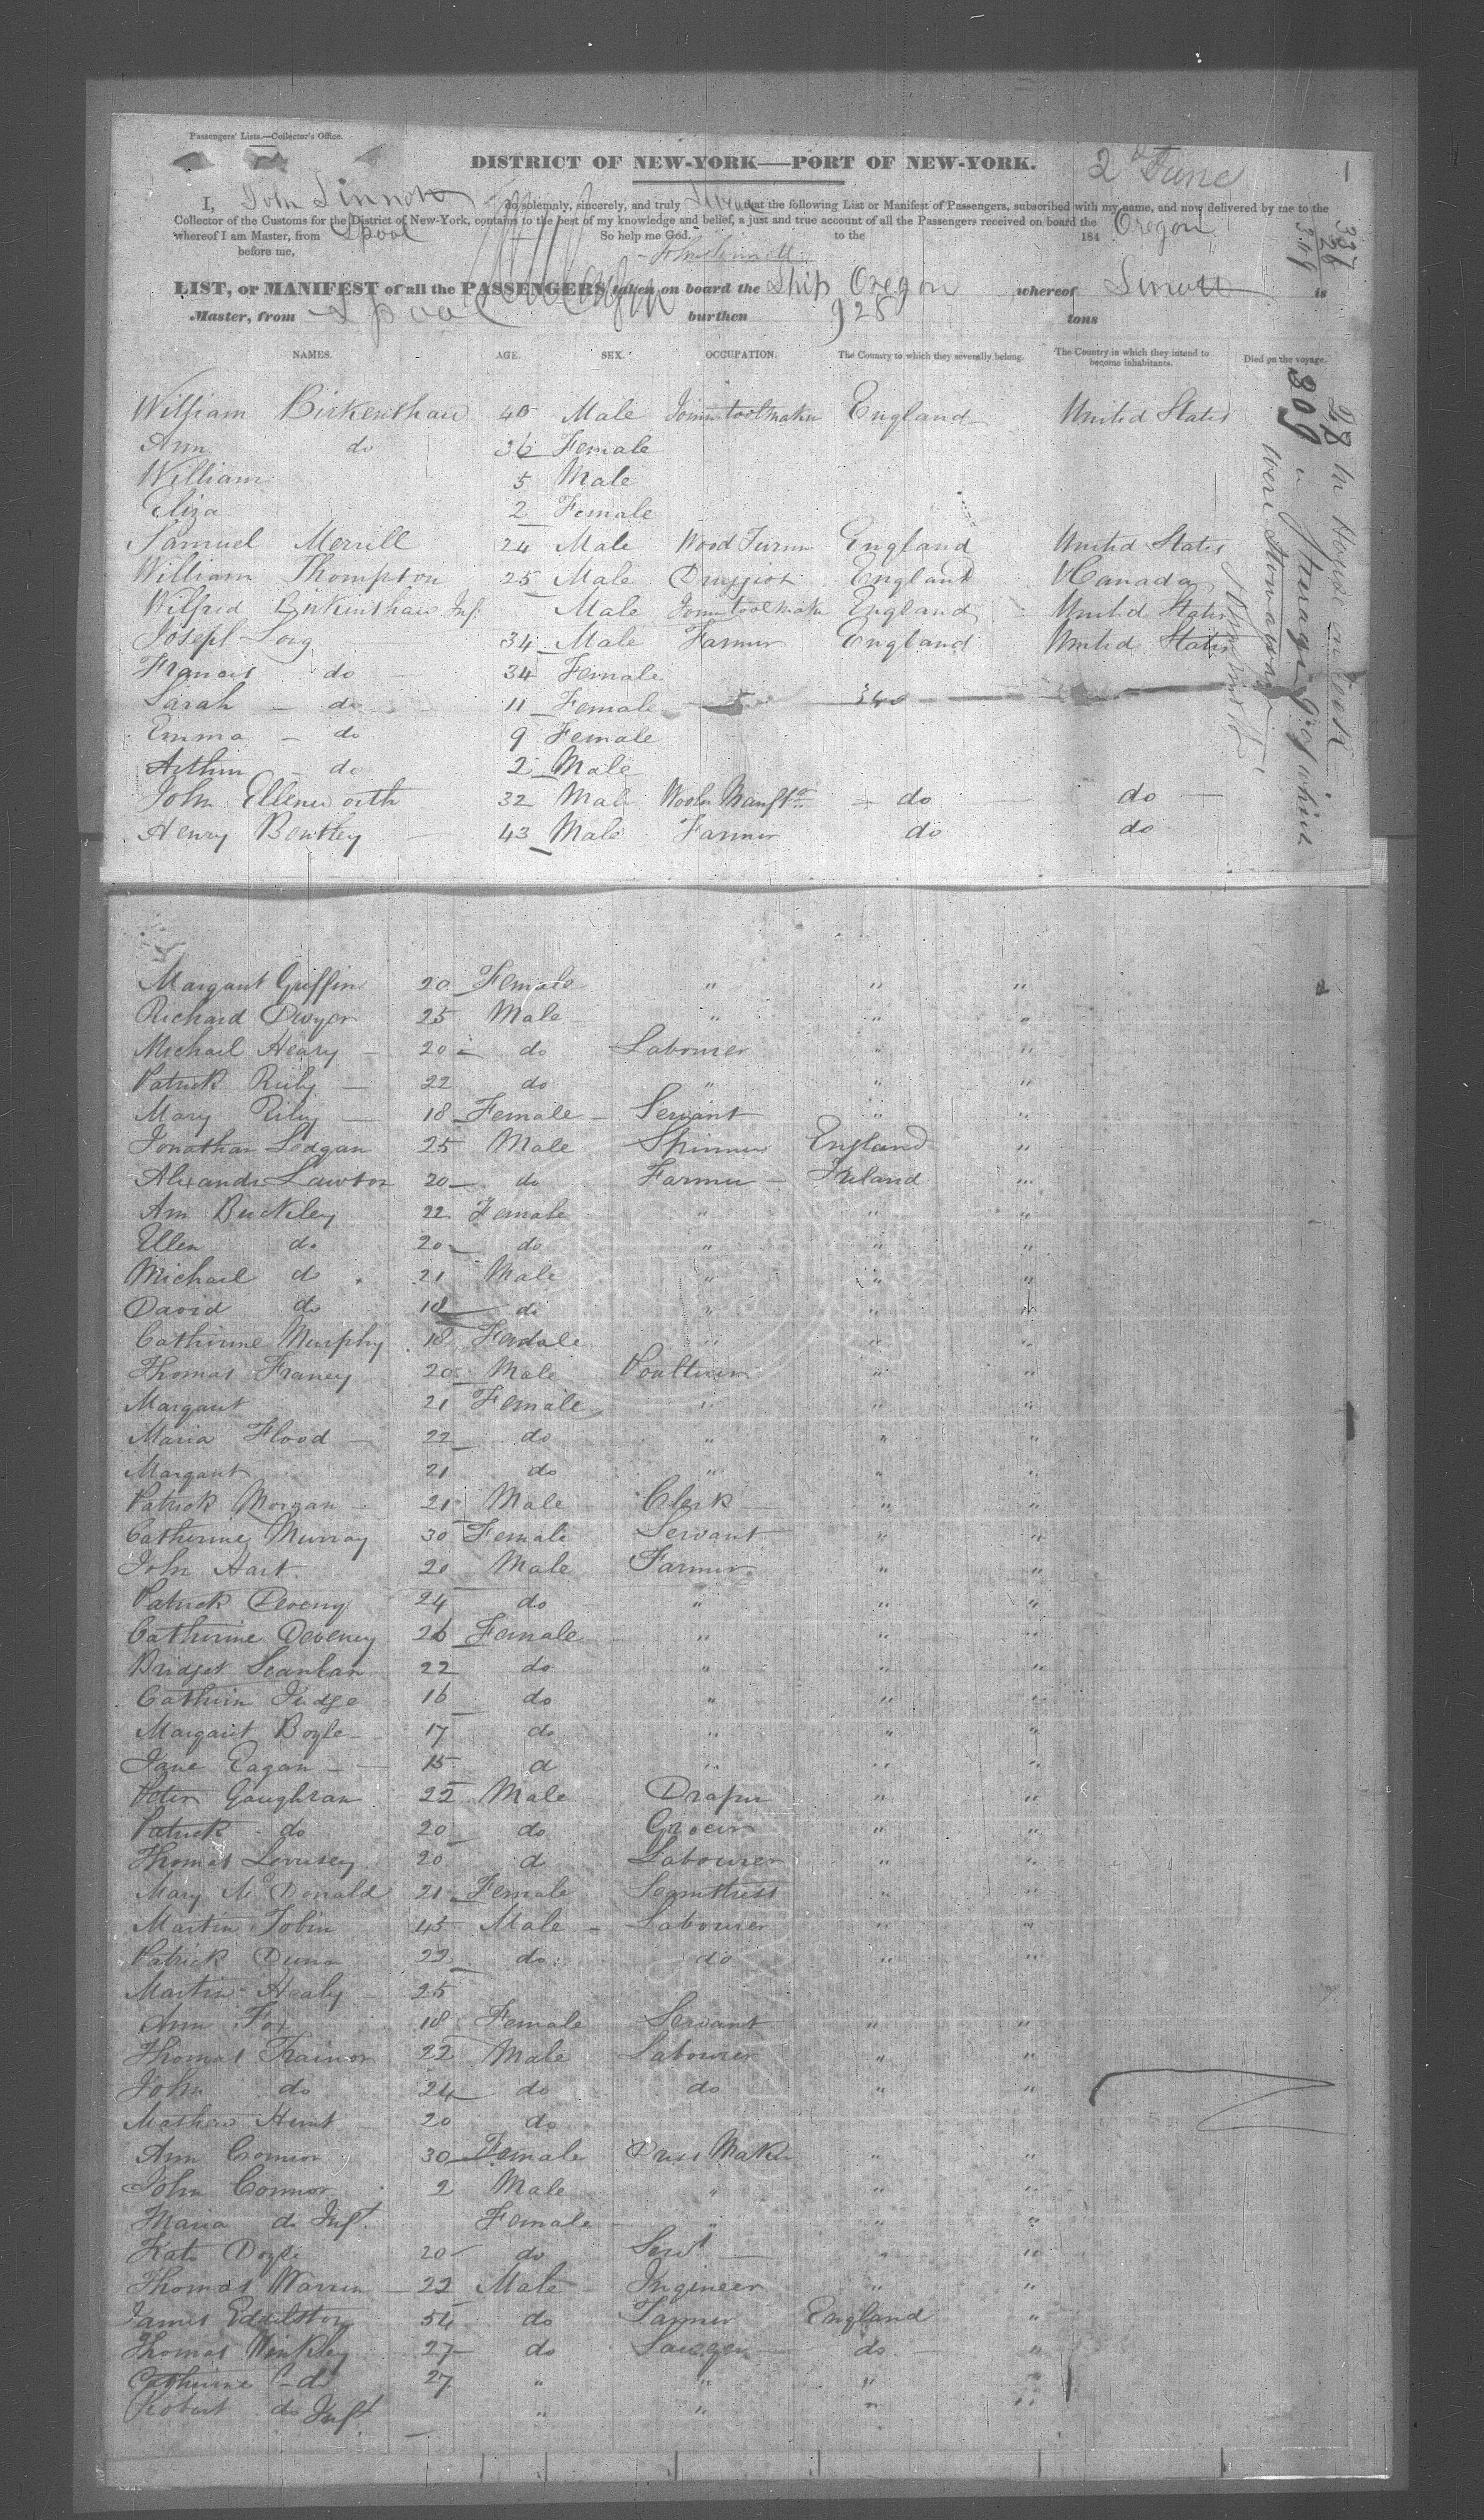 Passengers' Lists.—Collector's Office.
DISTRICT OF NEW-YORK—PORT OF NEW-YORK.
2d June
1
I, John Sinnott do solemnly, sincerely, and truly swear that the following List or Manifest of Passengers, subscribed with my name, and now delivered by me to the
Collector of the Customs for the District of New-York, contains to the best of my knowledge and belief, a just and true account of all the Passengers received on board the Oregon
whereof I am Master, from Lpool So help me God. to the 184
before me, John Sinnott
LIST, or MANIFEST of all the PASSENGERS taken on board the Ship Oregon whereof Sinnott is
Master, from Lpool burthen 928 tons
NAMES. AGE. SEX. OCCUPATION. The Country to which they severally belong. The Country in which they intend to become inhabitants. Died on the voyage.
William Birkenshaw 40 Male Joiners toolmaker England United States
Ann do 36 Female
William 5 Male
Eliza 2 Female
Samuel Merrill 24 Male Wood Turner England United States
William Thompson 25 Male Druggist England Canada
Wilfred Birkinshaw Inf. Male Joiners toolmaker England United States
Joseph Long 34 Male Farmer England United States
Frances do 34 Female
Sarah do 11 Female
Emma do 9 Female
Arthur do 2 Male
John Ellenworth 32 Male Woolen Manftr do do
Henry Bentley 43 Male Farmer do do
337
28
309
28 in House on deck
309 in Steerage of which
were Stowaways
John Sinnott
Margaret Griffin 20 Female " " "
Richard Dwyer 25 Male " " "
Michael Heary 20 do Labourer " "
Patrick Rily 22 do " " "
Mary Rily 18 Female Servant " "
Jonathan Ledgan 25 Male Spinner England "
Alexander Lawton 20 do Farmer Ireland "
Ann Buckley 22 Female " " "
Ellen do 20 do " " "
Michael do 21 Male " " "
David do 18 do " " "
Catherine Murphy 18 Female " " "
Thomas Franey 20 Male Poulterer " "
Margaret 21 Female " " "
Maria Flood 22 do " " "
Margaret 21 do " " "
Patrick Morgan 21 Male Clerk " "
Catherine Murray 30 Female Servant " "
John Hart 20 Male Farmer " "
Patrick Deveny 24 do " " "
Catherine Deveney 26 Female " " "
Bridget Scanlan 22 do " " "
Cathrin Judge 16 do " " "
Margaret Boyle 17 do " " "
Jane Eagan 15 d " " "
Peter Gaughran 22 Male Draper " "
Patrick do 20 do Grocer " "
Thomas 20 d Labourer " "
Mary McDonald 21 Female Seamtress " "
Martin Tobin 45 Male Labourer " "
Patrick Dunn 22 do do " "
Martin Healy 25
Ann Fox 18 Female Servant " "
Thomas Trainor 22 Male Labourer " "
John do 24 do do " "
Mathew Hunt 20 do
Ann Connor 30 Female Dress Maker " "
John Connor 2 Male " " "
Maria do Inft. Female " " "
Kate Doyle 20 do Servt " "
Thomas Warren 22 Male Ingineer " "
James Eddilston 54 do Farmer England "
Thomas Winkley 27 do Sawyer do "
Catherine do 27 " " " "
Robert do Inft. " " " "